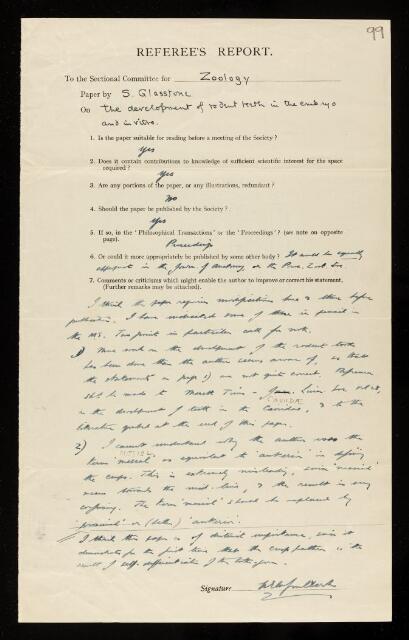 99
REFEREE'S REPORT.
To the Sectional Committee for Zoology
Paper by S. Glasstone
On the development of rodent teeth in the embryo
and in vitro.
1. Is the paper suitable for reading before a meeting of the Society?
Yes
2. Does it contain contributions to knowledge of sufficient scientific interest for the space
required?
Yes
3. Are any portions of the paper, or any illustrations, redundant?
No
4. Should the paper be published by the Society?
Yes
5. If so, in the 'Philosophical Transactions' or the 'Proceedings'? (see note on opposite
page).
Proceedings
6. Or could it more appropriately be published by some other body? It would be equally
appropriate in the Journ. of Anatomy or the Proc. Zool. Soc.
7. Comments or criticisms which might enable the author to improve or correct his statement,
(Further remarks may be attached).
I think the paper requires modification here & there before
publication. I have indicated some of these in pencil in
the MS. Two points in particular call for note.
1) More work on the development of the rodent tooth
has been done than the author seems aware of, so that
the statements on page 1) are not quite correct. Reference
should be made to Marett Tims - Journ. Linn. Soc. vol. 28,
CAVIIDAE
on the development of teeth in the Caviidae, & to the
literature quoted at the end of this paper.
2) I cannot understand why the author uses the
MESIAL
term 'mesial' as equivalent to 'anterior' in defining
the cusps. This is extremely misleading, since 'mesial'
means towards the mid-line, & the result is very
confusing. The term 'mesial' should be replaced by
'proximal' or (better) 'anterior'.
I think this paper is of distinct importance, since it
demonstrates for the first time that the cusp pattern is the
result of self-differentiation of the tooth germ.
Signature